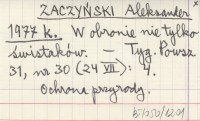 ZACZYŃSKI Aleksander
1977 k. W obronie nie tylko
świstaków. — Tyg. Powsz.
31, nr 30 (24 VII): 4.
Ochrona przyrody.